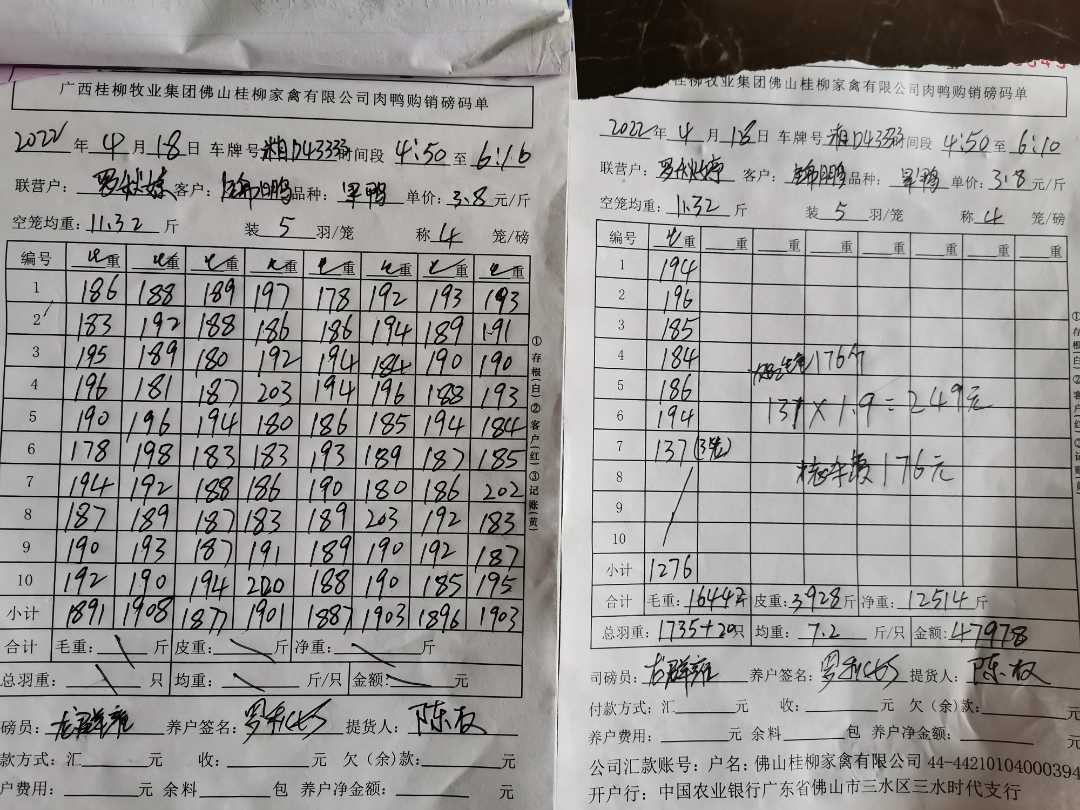 广西桂柳牧业集团佛山桂柳家禽有限公司肉鸭购销磅码单
2022年 4月 18日 车牌号 湘D4333 时间段 4:50 至 6:10
联营户: 客户: 品种: 单价: 3.8 元/斤
空笼均重: 11.32 斤 装 5 羽/笼 称 4 笼/磅
编号 毛重 毛重 毛重 毛重 毛重 毛重 毛重 毛重
1 186 188 189 197 178 192 193 193
2 183 192 188 186 186 194 189 191
3 195 189 180 192 194 184 190 190
4 196 181 187 203 194 196 188 193
5 190 196 194 180 186 185 194 184
6 178 198 183 183 193 189 187 185
7 194 192 188 186 190 180 186 202
8 187 189 187 183 189 203 192 183
9 190 193 187 191 189 190 192 187
10 192 190 194 200 188 190 185 195
小计 1891 1908 1877 1901 1887 1903 1896 1903
合计 毛重: 斤 皮重: 斤 净重: 斤
总羽重: 只 均重: 斤/只 金额: 元
磅员: 养户签名: 提货人: 陈权
款方式: 汇 元 收: 元 欠(余)款: 元
户费用: 元 余料 包 养户净金额: 元
①存根(白)②客户(红)③记账(黄)
桂柳牧业集团佛山桂柳家禽有限公司肉鸭购销磅码单
2022年 4月 18日 车牌号 湘D4333 间段 4:50 至 6:10
联营户: 客户: 品种: 单价: 3.8 元/斤
空笼均重: 11.32 斤 装 5 羽/笼 称 4 笼/磅
编号 毛重 重 重 重 重 重 重
1 194
2 196
3 185
4 184 176个
5 186 131×1.9=249元
6 194
7 137(3笼)
8 176元
9
10
小计 1276
合计 毛重: 16442斤 皮重: 3928斤 净重: 12514斤
总羽重: 1735+20只 均重: 7.2 斤/只 金额: 47978
司磅员: 养户签名: 提货人: 陈权
付款方式: 汇 元 收: 元 欠(余)款:
养户费用: 元 余料 包 养户净金额: 元
公司汇款账号: 户名: 佛山桂柳家禽有限公司 44-44210104000394
开户行: 中国农业银行广东省佛山市三水区三水时代支行